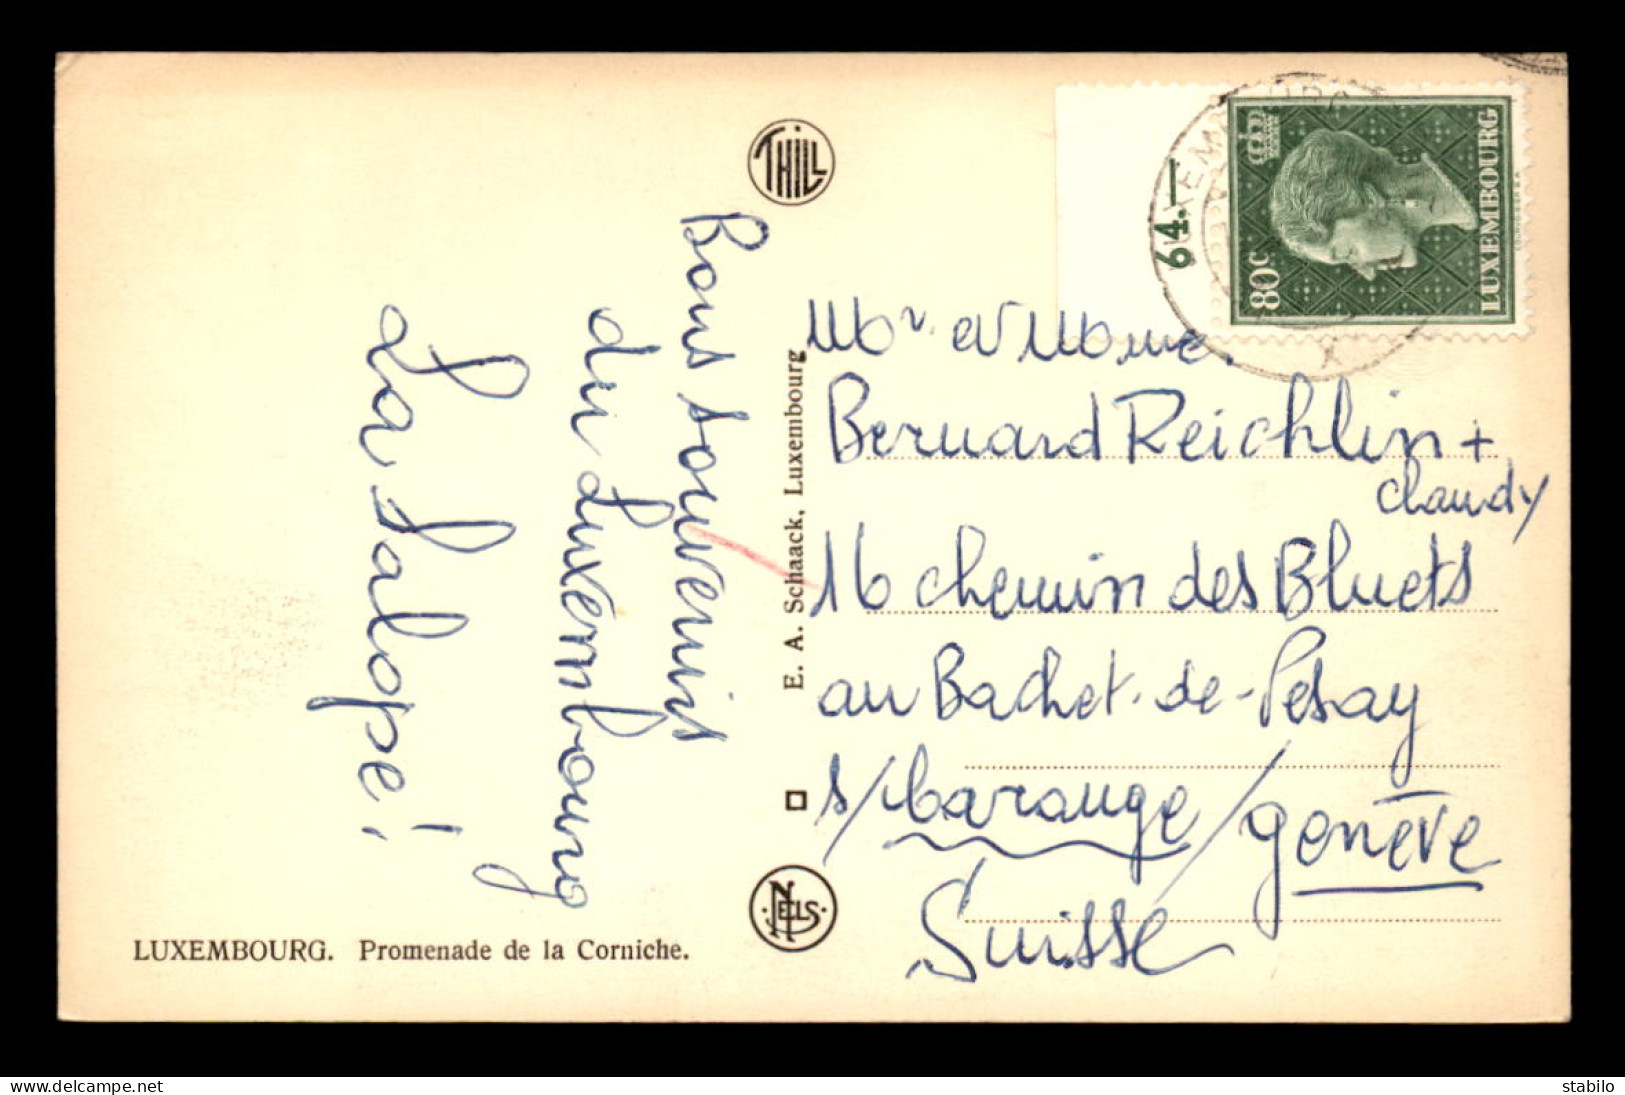 Bons souvenirs
du Luxembourg
La Salope!
LUXEMBOURG. Promenade de la Corniche.
THILL
E. A. Schaack, Luxembourg
NELS
64.—
LUXEMBOURG
80c
LUXEMBOURG
Mr. et Mme.
Bernard Reichlin +
Claudy
16 chemin des Bluets
au Bachet-de-Pesay
s/
/Genève
Suisse
delcampe.net
stabilo